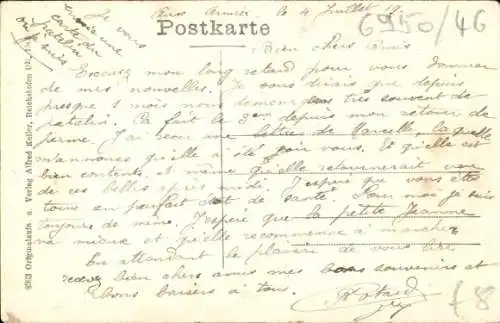 Je vous
envoie une
carte du
patelin
où je suis
Aux Armées le 4 Juillet 19
6950/46
Postkarte
Bien chers amis
Excusez mon long retard pour vous donner
de mes nouvelles. Je vous dirais que depuis
presque 1 mois nous demenageons très souvent de
patelin. Ca fait le 3eme depuis mon retour de
perme. J'ai reçu une lettre de Marcelle, laquelle
m'annonce qu'elle a été voir vous. Et qu'elle est
bien contente. Et même qu'elle retournerait
de ces belles après midi. J'espère que vous êtes
tous en parfait état de santé. Pour moi je suis
toujours de même. J'espère que la petite Jeanne
va mieux et qu'elle recommence à marcher
En attendant le plaisir de vous lire
recevez bien chers amis mes bons souvenirs et
Bons baisers à tous.
f8
Originalaufn. u. Verlag Alfred Keller, Reichshofen